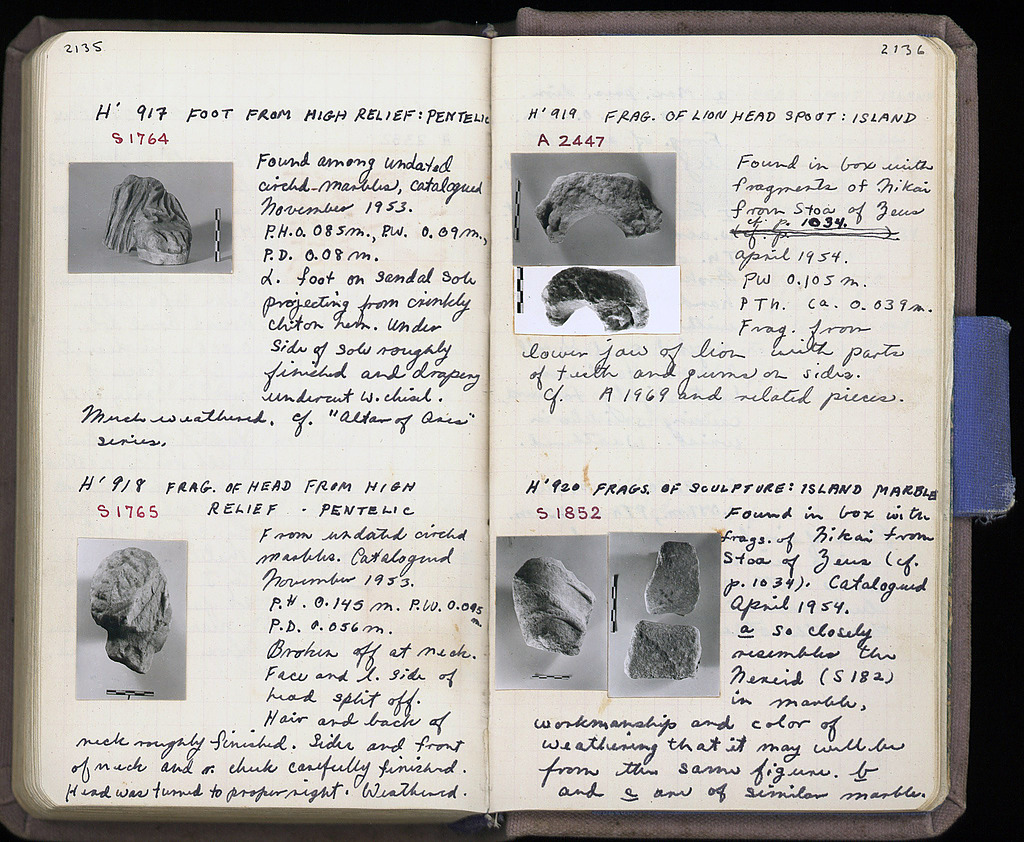 2135
H' 917 FOOT FROM HIGH RELIEF: PENTELIC
S 1764
Found among undated
circld-marbles, catalogued
November 1953.
P.H. 0.085m., P.W. 0.09m.,
P.D. 0.08m.
L. foot on sandal sole
projecting from crinkly
chiton hem. Under
side of sole roughly
finished and drapery
undercut w. chisel.
Much weathered. Cf. "Altar of Ares"
series.
H' 918 FRAG. OF HEAD FROM HIGH
S 1765 RELIEF - PENTELIC
From undated circld
marbles. Catalogued
November 1953.
P.H. 0.145 m. P.W. 0.095
m
P.D. 0.056 m.
Broken off at neck.
Face and l. side of
head split off.
Hair and back of
neck roughly finished. Side and front
of neck and r. cheek carefully finished.
Head was turned to proper right. Weathered.
2136
H' 919 FRAG. OF LION HEAD SPOUT: ISLAND
A 2447
Found in box with
fragments of Nikai
from Stoa of Zeus
cf. p. 1034.
(cf. p.
April 1954.
PW 0.105 m.
P Th. ca. 0.039m.
Frag. from
lower jaw of lion with parts
of teeth and gums on sides.
Cf. A 1969 and related pieces.
H' 920 FRAGS. OF SCULPTURE: ISLAND MARBLE
S 1852
Found in box with
frags. of Nikai from
Stoa of Zeus (cf.
p. 1034). Catalogued
April 1954.
a so closely
resembles the
Nereid (S 182)
in marble,
workmanship and color of
weathering that it may well be
from the same figure. b
and c are of similar marble.